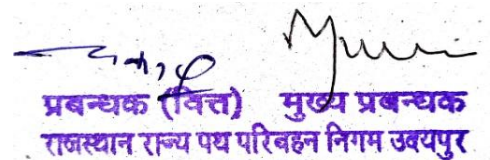 प्रबन्धक (वित्त) मुख्य प्रबन्धक
राजस्थान राज्य पथ परिवहन निगम उदयपुर